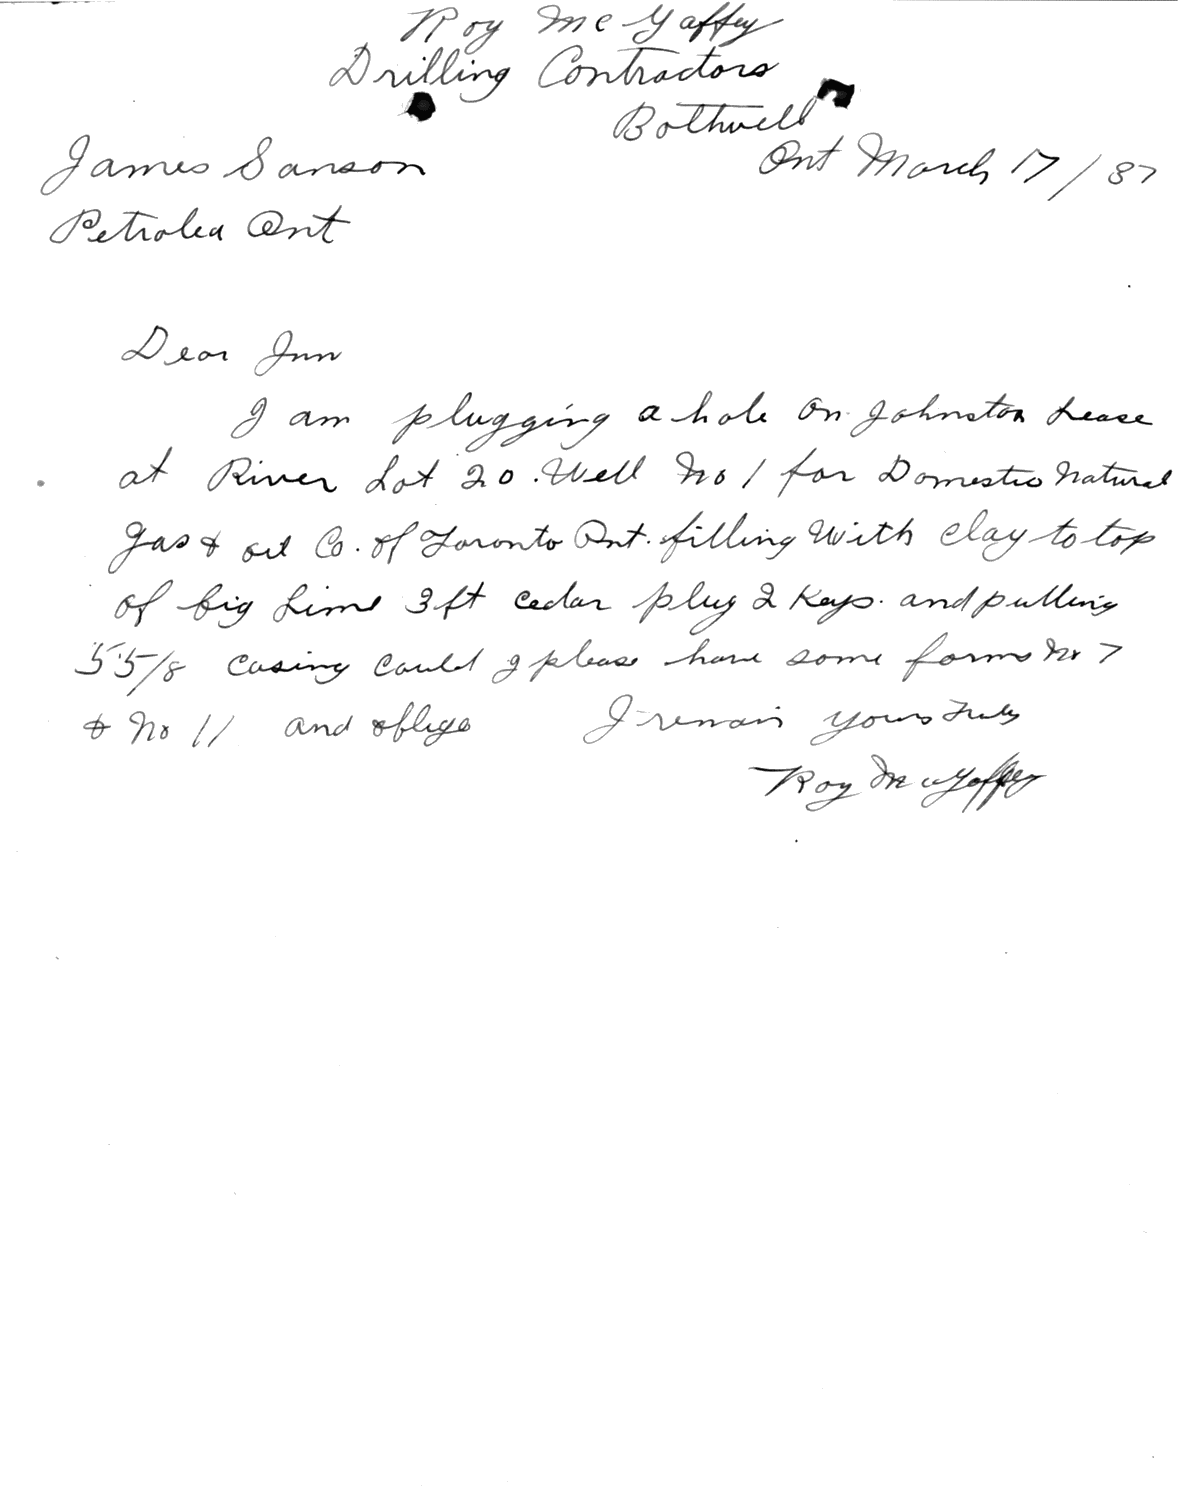 Roy McGaffey
Drilling Contractors
Bothwell
Ont March 17/37
James Sanson
Petrolea Ont
Dear Jim
I am plugging a hole on Johnston Lease
at River Lot 20. Well No 1 for Domestic Natural
Gas & oil Co. of Toronto Ont. filling With clay to top
of big Lime 3 ft cedar plug 2 Keys. and pulling
5 5/8 casing could I please have some forms No 7
& No 11 and oblige I remain yours Truly
Roy McGaffey